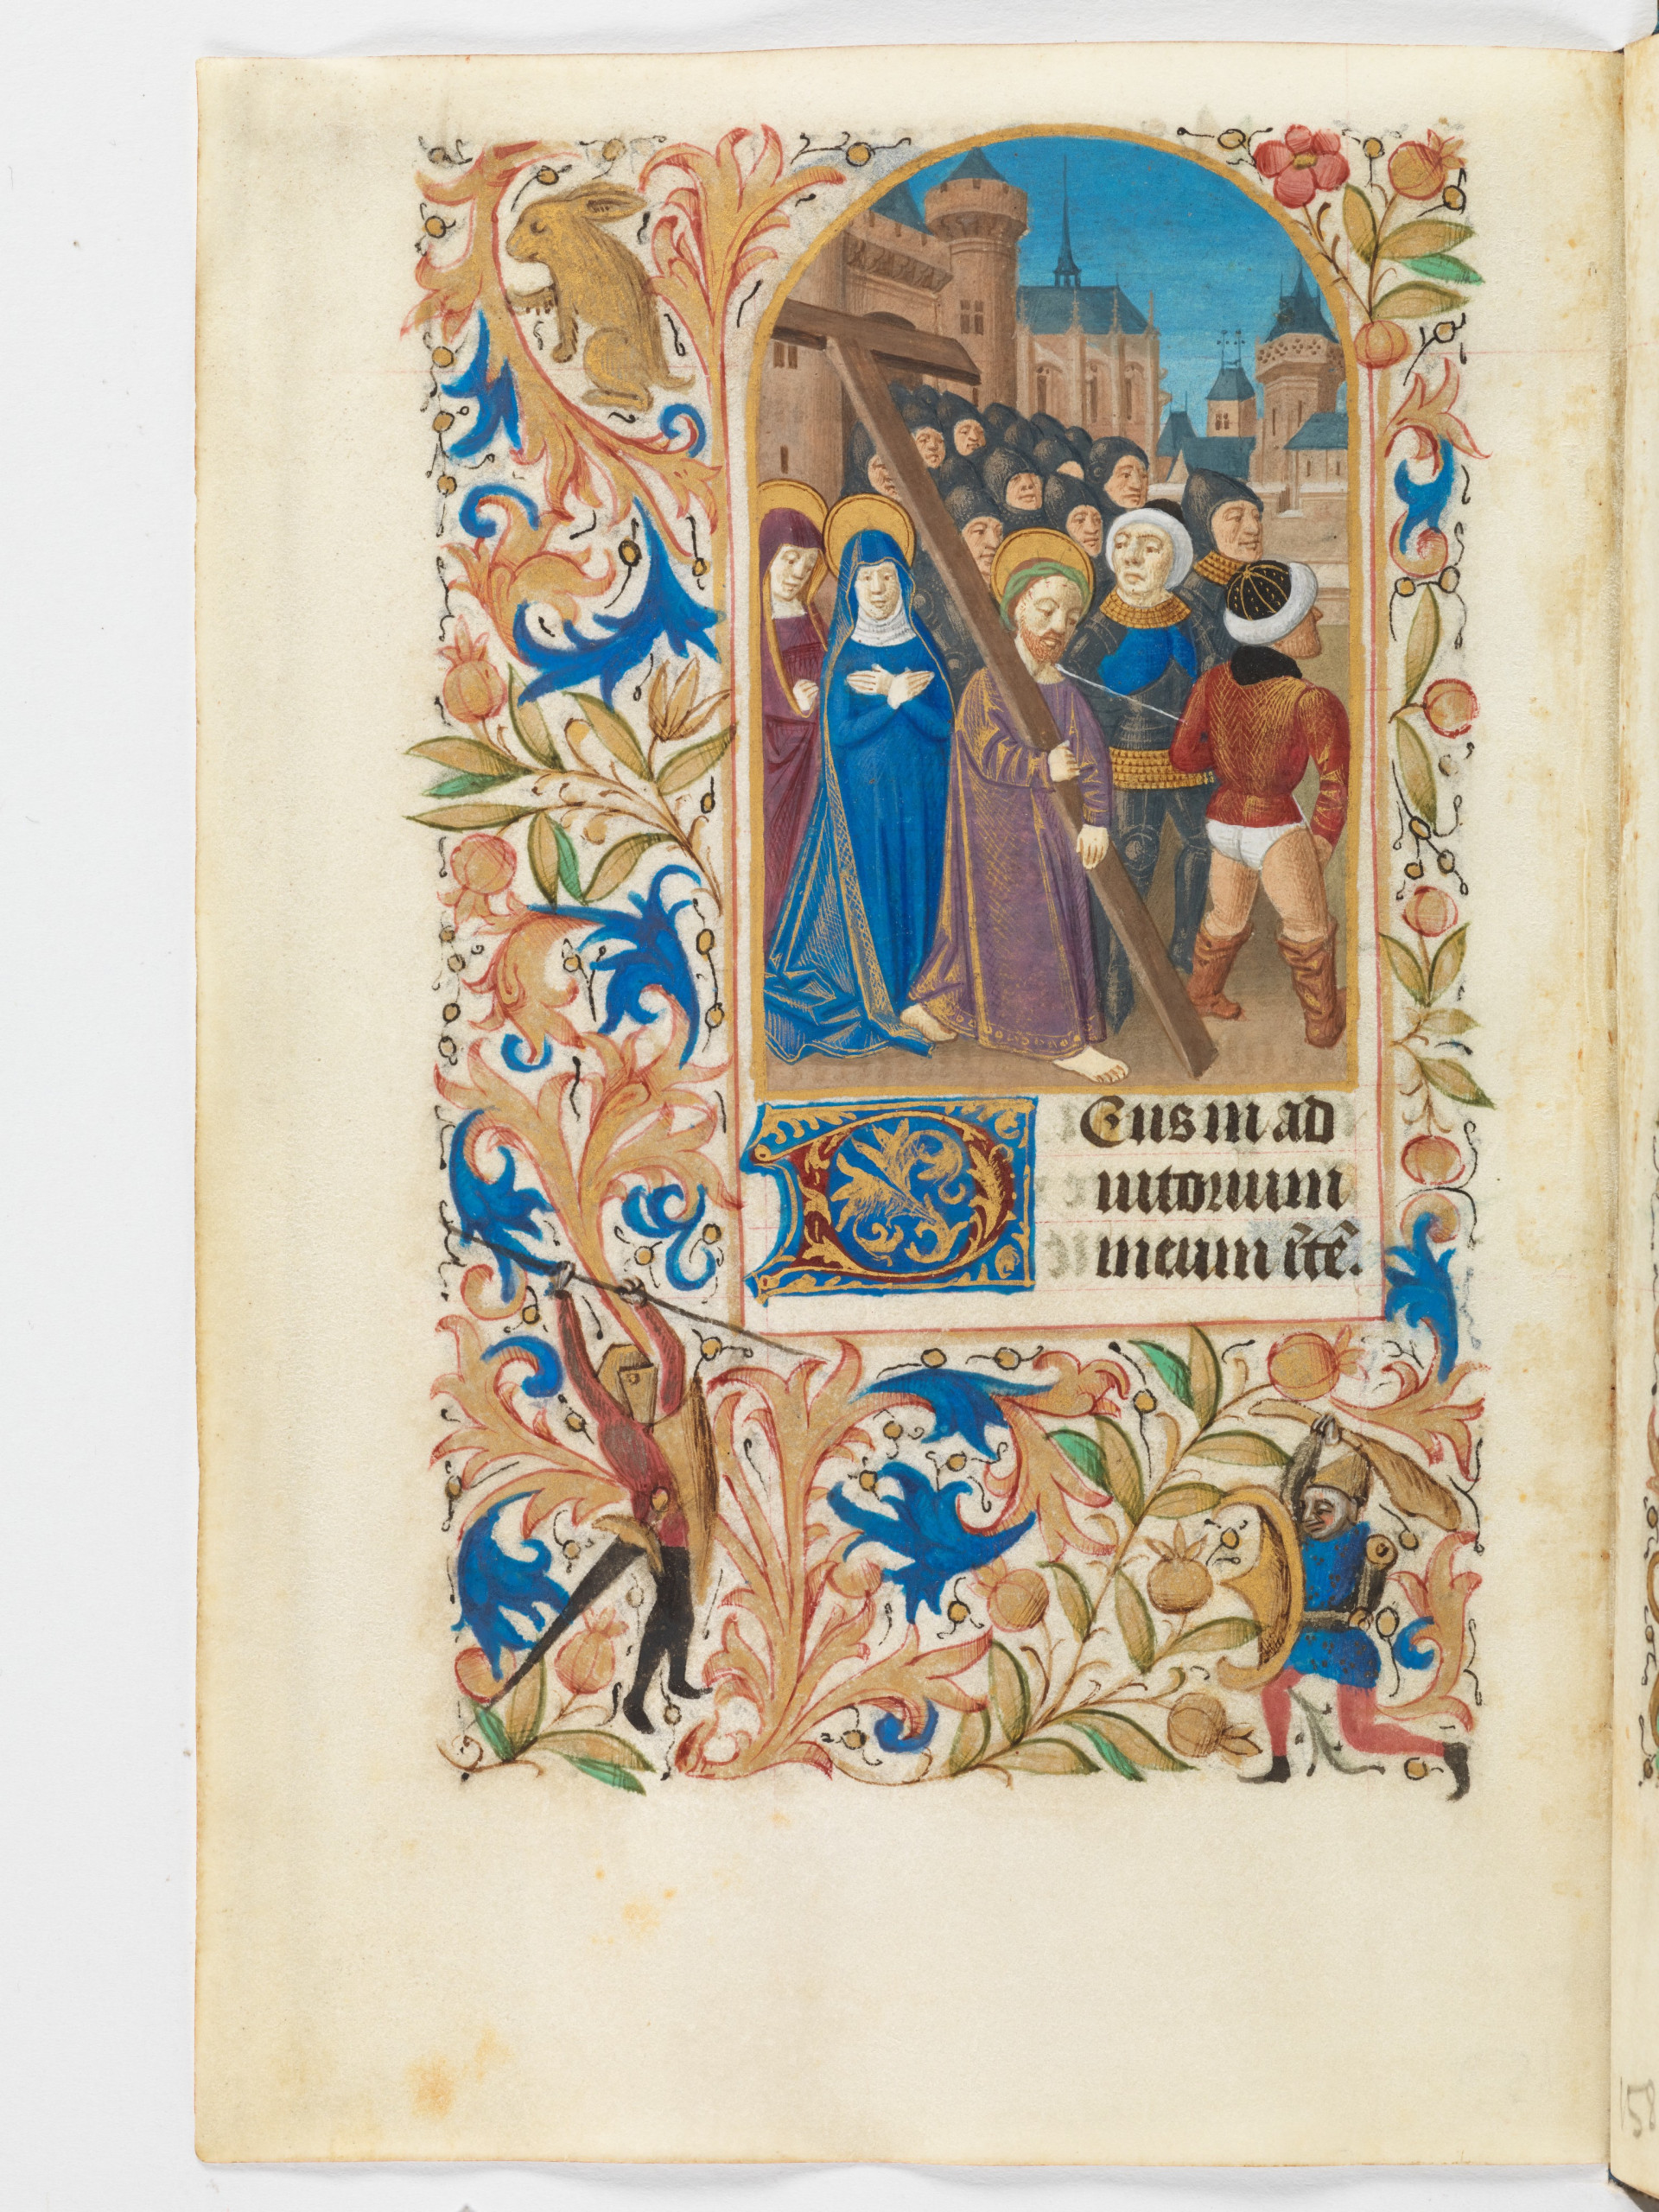 DEus in ad
iutorium
meum ītē.
158